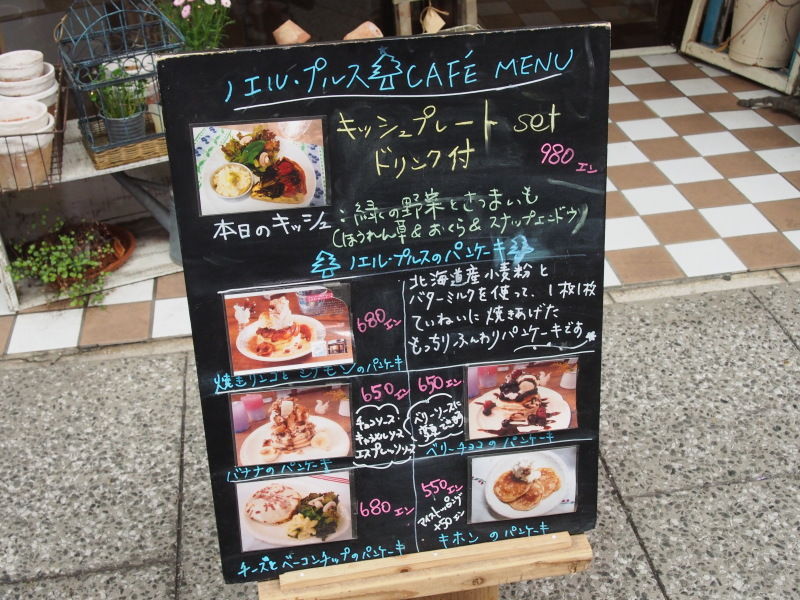 ノエル・プルス CAFÉ MENU
キッシュプレート set
ドリンク付
980エン
本日のキッシュ：緑の野菜とさつまいも
(ほうれん草&おくら&スナップエンドウ)
ノエル・プルスのパンケーキ
北海道産小麦粉と
バターミルクを使って、1枚1枚
ていねいに焼きあげた
もっちりふんわりパンケーキです
680エン
焼きリンゴとシナモンのパンケーキ
650エン
チョコソース・
キャラメルソース
エスプレッソソース
バナナのパンケーキ
650エン
ベリーソースに
変更できます
ベリーチョコのパンケーキ
680エン
チーズとベーコンチップのパンケーキ
550エン
アイストッピング
+50エン
キホンのパンケーキ